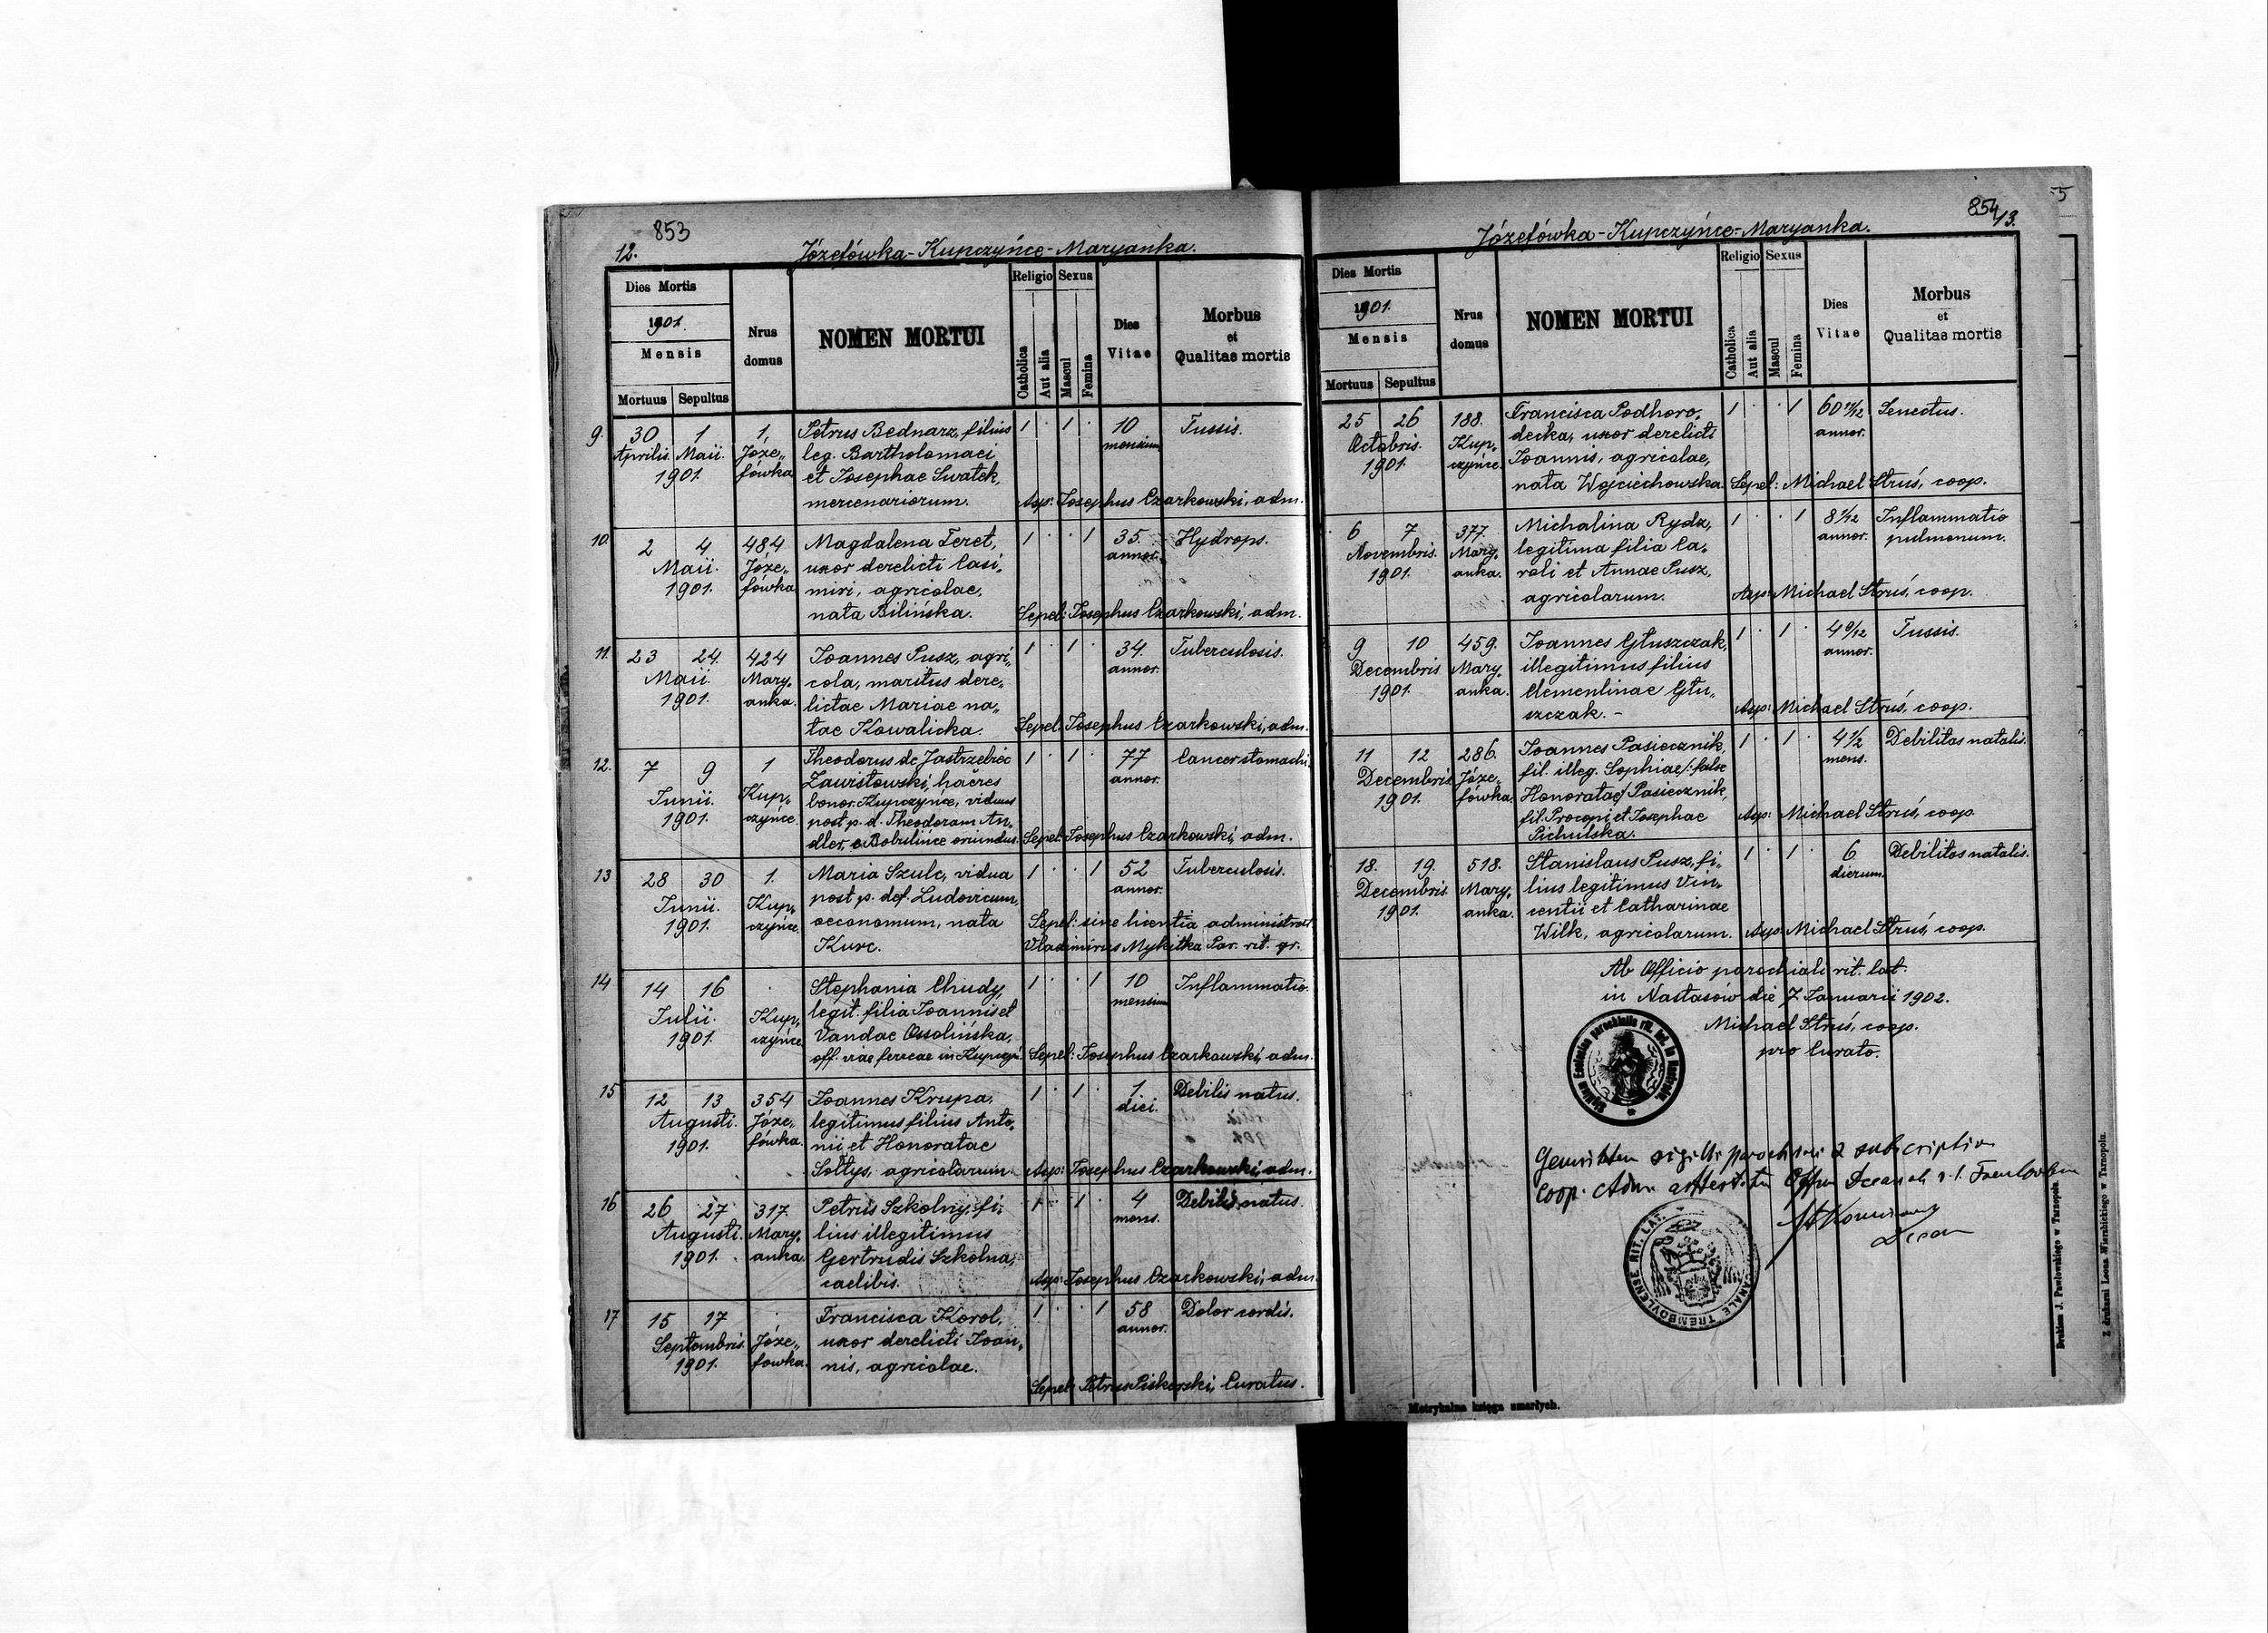 853
12.
Józefówka-Kupczyńce-Maryanka.
Dies Mortis
1901.
Mensis
Mortuus Sepultus
Nrus
domus
NOMEN MORTUI
Religio Sexus
Catholica
Aut alia
Mascul
Femina
Dies
Vitae
Morbus
et
Qualitas mortis
9. 30 1 1. Petrus Bednarz, filius 1 . 1 . 10 Tussis.
Aprilis. Maii. Józe„ leg. Bartholomaei mensium
1901. fówka et Josephae Swatek,
mercenariorum. Asp: Josephus Czarkowski, adm.
10. 2 4 484 Magdalena Feret, 1 . . 1 35. Hydrops.
Maii. Józe„ uxor derelicti Casi„ annor.
1901. fówka miri, agricolae,
nata Bilińska. Sepel: Josephus Czarkowski, adm.
11. 23 24. 424 Joannes Pusz, agri„ 1 . 1 . 34. Tuberculosis.
Maii. Mary„ cola, maritus dere„ annor.
1901. anka. lictae Mariae na„
tae Kowalicka. Sepel: Josephus Czarkowski, adm.
12. 7 9 1 Theodorus de Jastrzebiec 1 . 1 . 77 Cancer stomachi.
Zawistowski, haeres annor.
Junii. Kup„ bonor. Kupczyńce, viduus
1901. czyńce. post p. d. Theodoram An„
dler, e Bobulińce oriundus. Sepel: Josephus Czarkowski, adm.
13 28 30 1. Maria Szulc, vidua 1 . . 1 52 Tuberculosis.
Junii. Kup„ post p. def. Ludovicum, annor.
1901. czyńce oeconomum, nata Sepel: sine licentia administrat.
Kurc. Vladimirus Mykitka Par. rit. gr.
14 14 16 . Stephania Chudy, 1 . . 1 10 Inflammatio.
Julii. Kup„ legit. filia Joannis et mensium
1901. czyńce Vandae Ossolińska,
off. viae ferreae in Sepel: Josephus Czarkowski, adm.
15 12 13 354 Joannes Krupa, 1 . 1 . 1 Debilis natus.
Augusti. Józe„ legitimus filius Anto„ diei.
1901. fówka. nii et Honoratae
Sołtys, agricolarum. Asp: Josephus Czarkowski, adm.
16 26 27 317. Petrus Szkolny, fi„ 1 . 1 . 4 Debilis natus.
Augusti. Mary„ lius illegitimus mens.
1901. anka. Gertrudis Szkolna,
caelibis. Asp: Josephus Czarkowski, adm.
17 15 17 . Francisca Korol, 1 . . 1 58 Dolor cordis.
Septembris. Józe„ uxor derelicti Joan„ annor.
1901. fówka. nis, agricolae.
Sepel: Petrus Piskorski, Curatus.
854
13.
Józefówka-Kupczyńce-Maryanka.
Dies Mortis
1901.
Mensis
Mortuus Sepultus
Nrus
domus
NOMEN MORTUI
Religio Sexus
Catholica
Aut alia
Mascul
Femina
Dies
Vitae
Morbus
et
Qualitas mortis
25 26 188. Francisca Podhoro„ 1 . . 1 Senectus.
Octobris. Kup„ decka, uxor derelicti annor.
1901. czyńce. Joannis, agricolae,
nata Wojciechowska. Sepel: Michael Struś, coop.
6 7 377. Michalina Rydz, 1 . . 1 8 1/12 Inflammatio
Novembris. Mary„ legitima filia Ca„ annor. pulmonum.
1901. anka. roli et Annae Pusz,
agricolarum. Asp: Michael Struś, coop.
9 10 459. Joannes Głuszczak, 1 . 1 . Tussis.
Decembris Mary„ illegitimus filius annor.
1901. anka. Clementinae Głu„
szczak. - Asp: Michael Struś, coop.
11 12 286. Joannes Pasiecznik, 1 . 1 . 4 1/2 Debilitas natalis.
Decembris Józe„ fil. illeg. Sophiae /: false mens.
1901. fówka. Honoratae/ Pasiecznik,
fil. Procopi et Josephae Asp: Michael Struś, coop.
Pichulska.
18. 19. 518. Stanislaus Pusz, fi„ 1 . 1 . 6 Debilitas natalis.
Decembris Mary„ lius legitimus Vin„ dierum.
1901. anka. centii et Catharinae
Wilk, agricolarum. Asp: Michael Struś, coop.
Ab Officio parochiali rit. lat.
in Nastasów die 7. Januarii 1902.
Michael Struś, coop.
pro Curato.
DECANALE TREMBOVLENSE RIT. LAT.
Metrykalna księga umarłych.
Drukiem J. Pawłowskiego w Tarnopolu.
Z drukarni Leona Wierzbickiego w Tarnopolu.